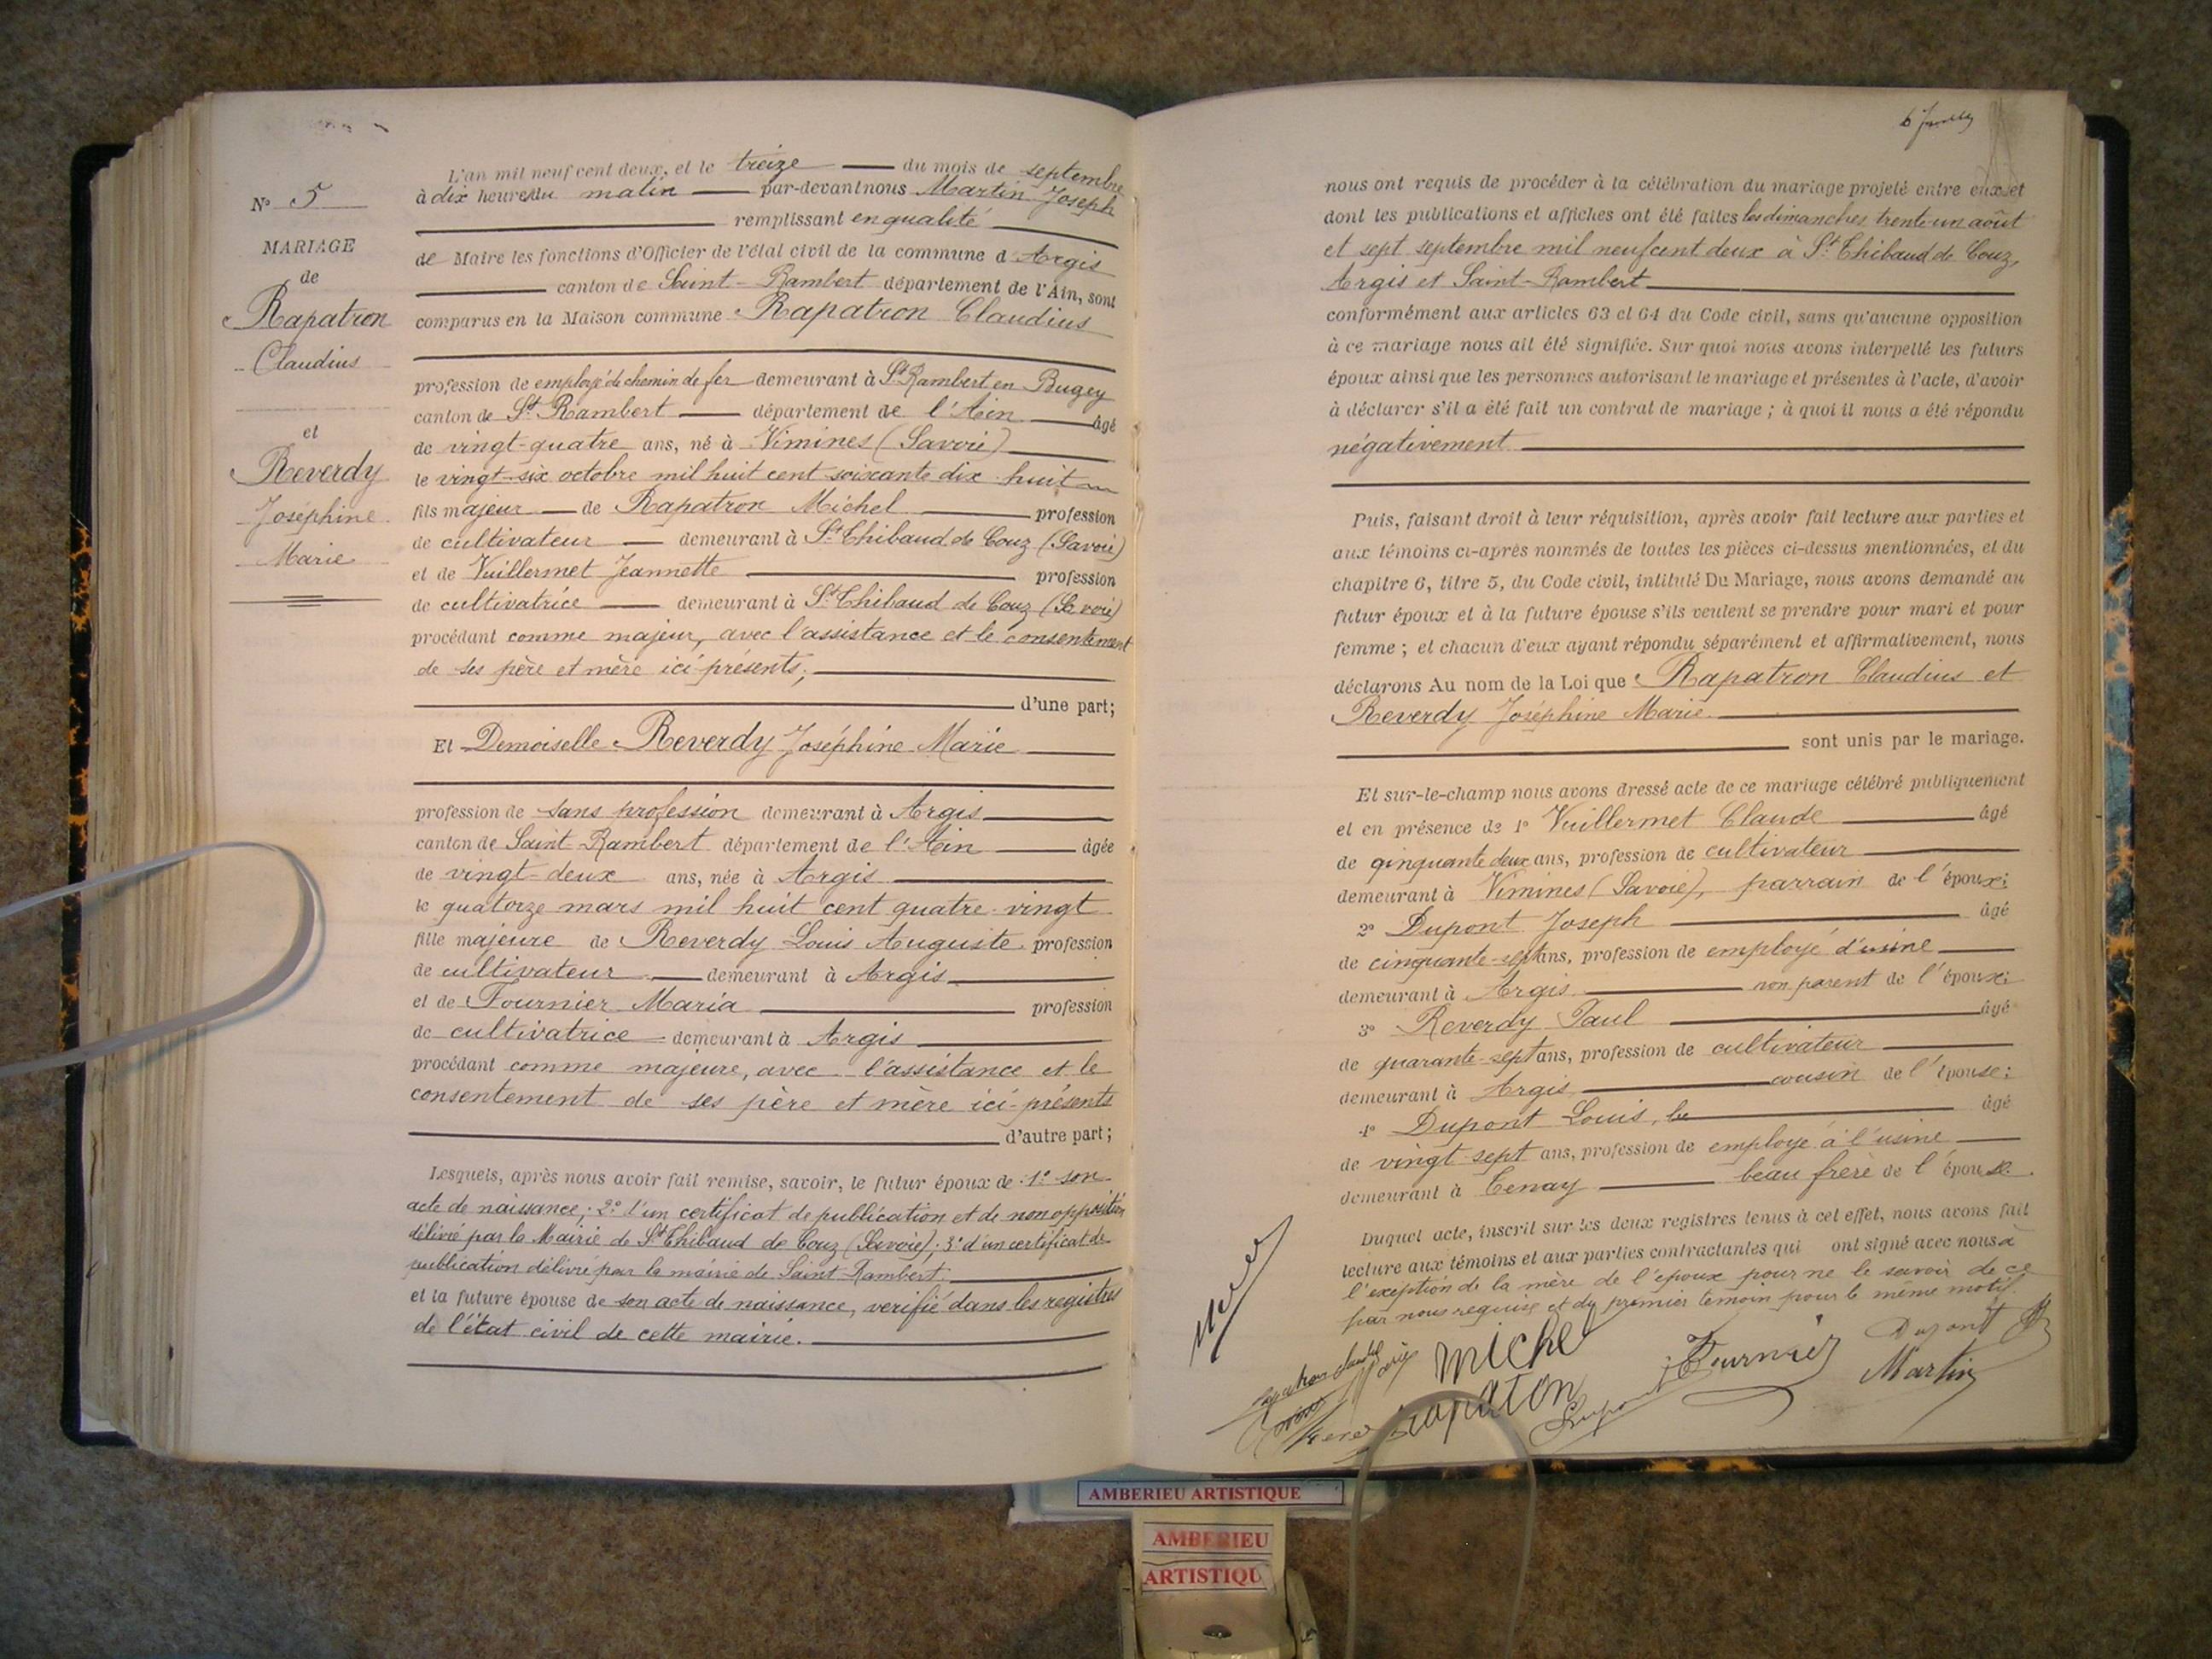 N° 5
MARIAGE
de
Rapatron
Claudius
et
Reverdy
Joséphine
Marie
L'an mil neuf cent deux, et le treize du mois de septembre
à dix heures du matin par-devant nous Martin Joseph
remplissant en qualité
de Maire les fonctions d'Officier de l'état civil de la commune d'Argis
canton de Saint-Rambert département de l'Ain, sont
comparus en la Maison commune Rapatron Claudius
profession de employé de chemin de fer demeurant à St Rambert en Bugey
canton de St Rambert département de l'Ain âgé
de vingt-quatre ans, né à Vimines (Savoie)
le vingt-six octobre mil huit cent soixante dix huit
fils majeur de Rapatron Michel profession
de cultivateur demeurant à St Thibaud de Couz (Savoie)
et de Vuillermet Jeannette profession
de cultivatrice demeurant à St Thibaud de Couz (Savoie)
procédant comme majeur, avec l'assistance et le consentement
de ses père et mère ici présents;
d'une part;
Et Demoiselle Reverdy Joséphine Marie
profession de sans profession demeurant à Argis
canton de Saint-Rambert département de l'Ain âgée
de vingt-deux ans, née à Argis
le quatorze mars mil huit cent quatre-vingt
fille majeure de Reverdy Louis Auguste profession
de cultivateur demeurant à Argis
et de Fournier Maria profession
de cultivatrice demeurant à Argis
procédant comme majeure, avec l'assistance et le
consentement de ses père et mère ici-présents
d'autre part;
Lesquels, après nous avoir fait remise, savoir, le futur époux de 1° son
acte de naissance; 2° d'un certificat de publication et de non opposition
délivré par la Mairie de St Thibaud de Couz (Savoie); 3° d'un certificat de
publication délivré par la mairie de Saint-Rambert;
et la future épouse de son acte de naissance, vérifié dans les registres
de l'état civil de cette mairie.
nous ont requis de procéder à la célébration du mariage projeté entre eux et
dont les publications et affiches ont été faites les dimanches trente-un août
et sept septembre mil neuf cent deux à St Thibaud de Couz,
Argis et Saint-Rambert
conformément aux articles 63 et 64 du Code civil, sans qu'aucune opposition
à ce mariage nous ait été signifiée. Sur quoi nous avons interpellé les futurs
époux ainsi que les personnes autorisant le mariage et présentes à l'acte, d'avoir
à déclarer s'il a été fait un contrat de mariage ; à quoi il nous a été répondu
négativement
Puis, faisant droit à leur réquisition, après avoir fait lecture aux parties et
aux témoins ci-après nommés de toutes les pièces ci-dessus mentionnées, et du
chapitre 6, titre 5, du Code civil, intitulé Du Mariage, nous avons demandé au
futur époux et à la future épouse s'ils veulent se prendre pour mari et pour
femme ; et chacun d'eux ayant répondu séparément et affirmativement, nous
déclarons Au nom de la Loi que Rapatron Claudius et
Reverdy Joséphine Marie
sont unis par le mariage.
Et sur-le-champ nous avons dressé acte de ce mariage célébré publiquement
et en présence de 1° Vuillermet Claude âgé
de cinquante deux ans, profession de cultivateur
demeurant à Vimines (Savoie), parrain de l'époux;
2° Dupont Joseph âgé
de cinquante-sept ans, profession de employé d'usine
demeurant à Argis non parent de l'époux;
3° Reverdy Paul âgé
de quarante-sept ans, profession de cultivateur
demeurant à Argis cousin de l'épouse;
4° Dupont Louis, âgé
de vingt sept ans, profession de employé à l'usine
demeurant à Tenay beau frère de l'épouse.
Duquel acte, inscrit sur les deux registres tenus à cet effet, nous avons fait
lecture aux témoins et aux parties contractantes qui ont signé avec nous à
l'exception de la mère de l'époux pour ne le savoir de ce
par nous requise et du premier témoin pour le même motif.
Miche
Fournier
Dupont
Martin
AMBERIEU ARTISTIQUE
AMBERIEU
ARTISTIQU